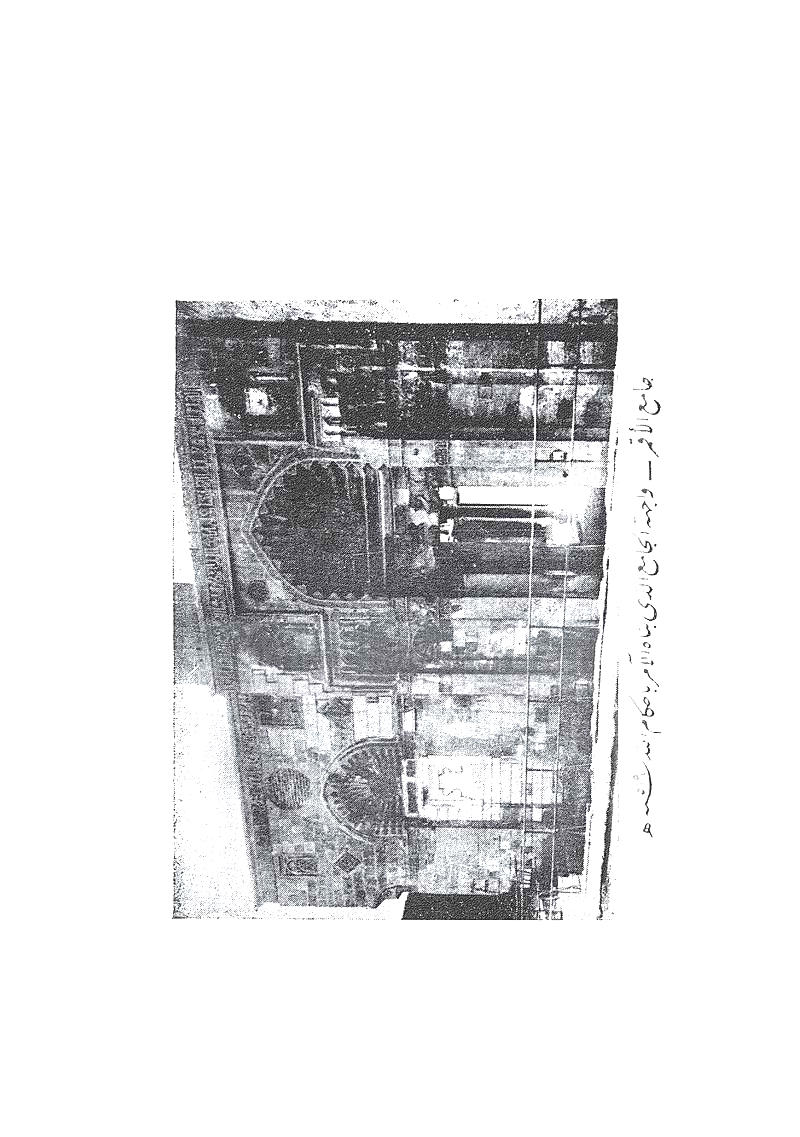 جامع الأقمر — واجهة الجامع الذى بناه الآمر بأحكام الله سنة هـ